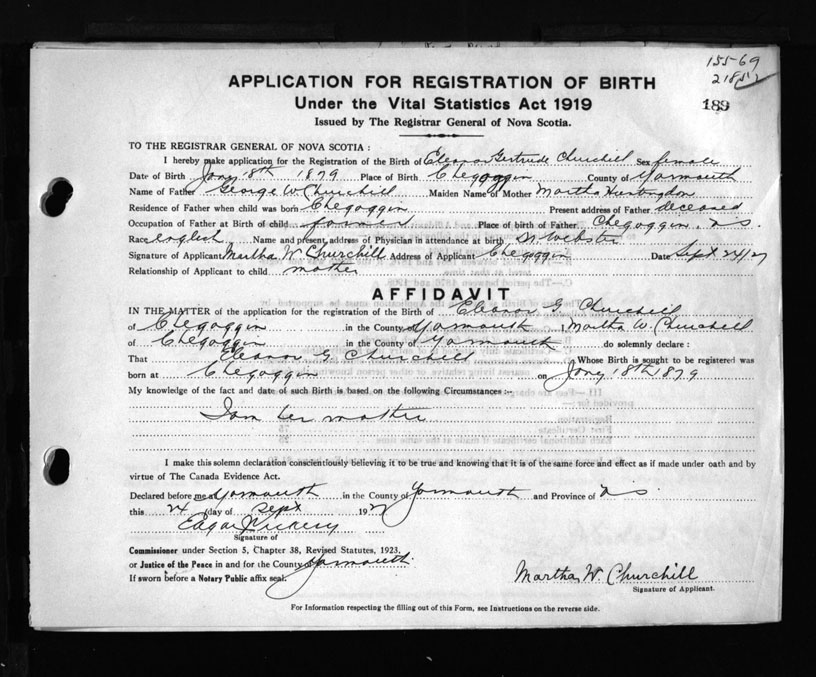 15569
APPLICATION FOR REGISTRATION OF BIRTH
Under the Vital Statistics Act 1919
189
Issued by The Registrar General of Nova Scotia.
TO THE REGISTRAR GENERAL OF NOVA SCOTIA :
I hereby make application for the Registration of the Birth of Eleanor Gertrude Churchill Sex female
Date of Birth Jany 18th 1879 Place of Birth Chegoggin County of Yarmouth
Name of Father George W Churchill Maiden Name of Mother Martha Huntingdon
Residence of Father when child was born Chegoggin Present address of Father deceased
Occupation of Father at Birth of child farmer Place of birth of Father Chegoggin N.S.
Race English Name and present address of Physician in attendance at birth Webster
Signature of Applicant Martha W Churchill Address of Applicant Chegoggin Date Sept 24/27
Relationship of Applicant to child mother
AFFIDAVIT
IN THE MATTER of the application for the registration of the Birth of Eleanor G. Churchill
of Chegoggin in the County Yarmouth I, Martha W. Churchill
of Chegoggin in the County of Yarmouth do solemnly declare :
That Eleanor G Churchill Whose Birth is sought to be registered was
born at Chegoggin on Jany 18th 1879
My knowledge of the fact and date of such Birth is based on the following Circumstances :-
I am her mother
I make this solemn declaration conscientiously believing it to be true and knowing that it is of the same force and effect as if made under oath and by
virtue of The Canada Evidence Act.
Declared before me at Yarmouth in the County of Yarmouth and Province of N S.
this 24 day of Sept 1927
Edgar Vickery
Signature of
Commissioner under Section 5, Chapter 38, Revised Statutes, 1923.
or Justice of the Peace in and for the County Yarmouth
If sworn before a Notary Public affix seal.
Martha W. Churchill
Signature of Applicant.
For Information respecting the filling out of this Form, see Instructions on the reverse side.